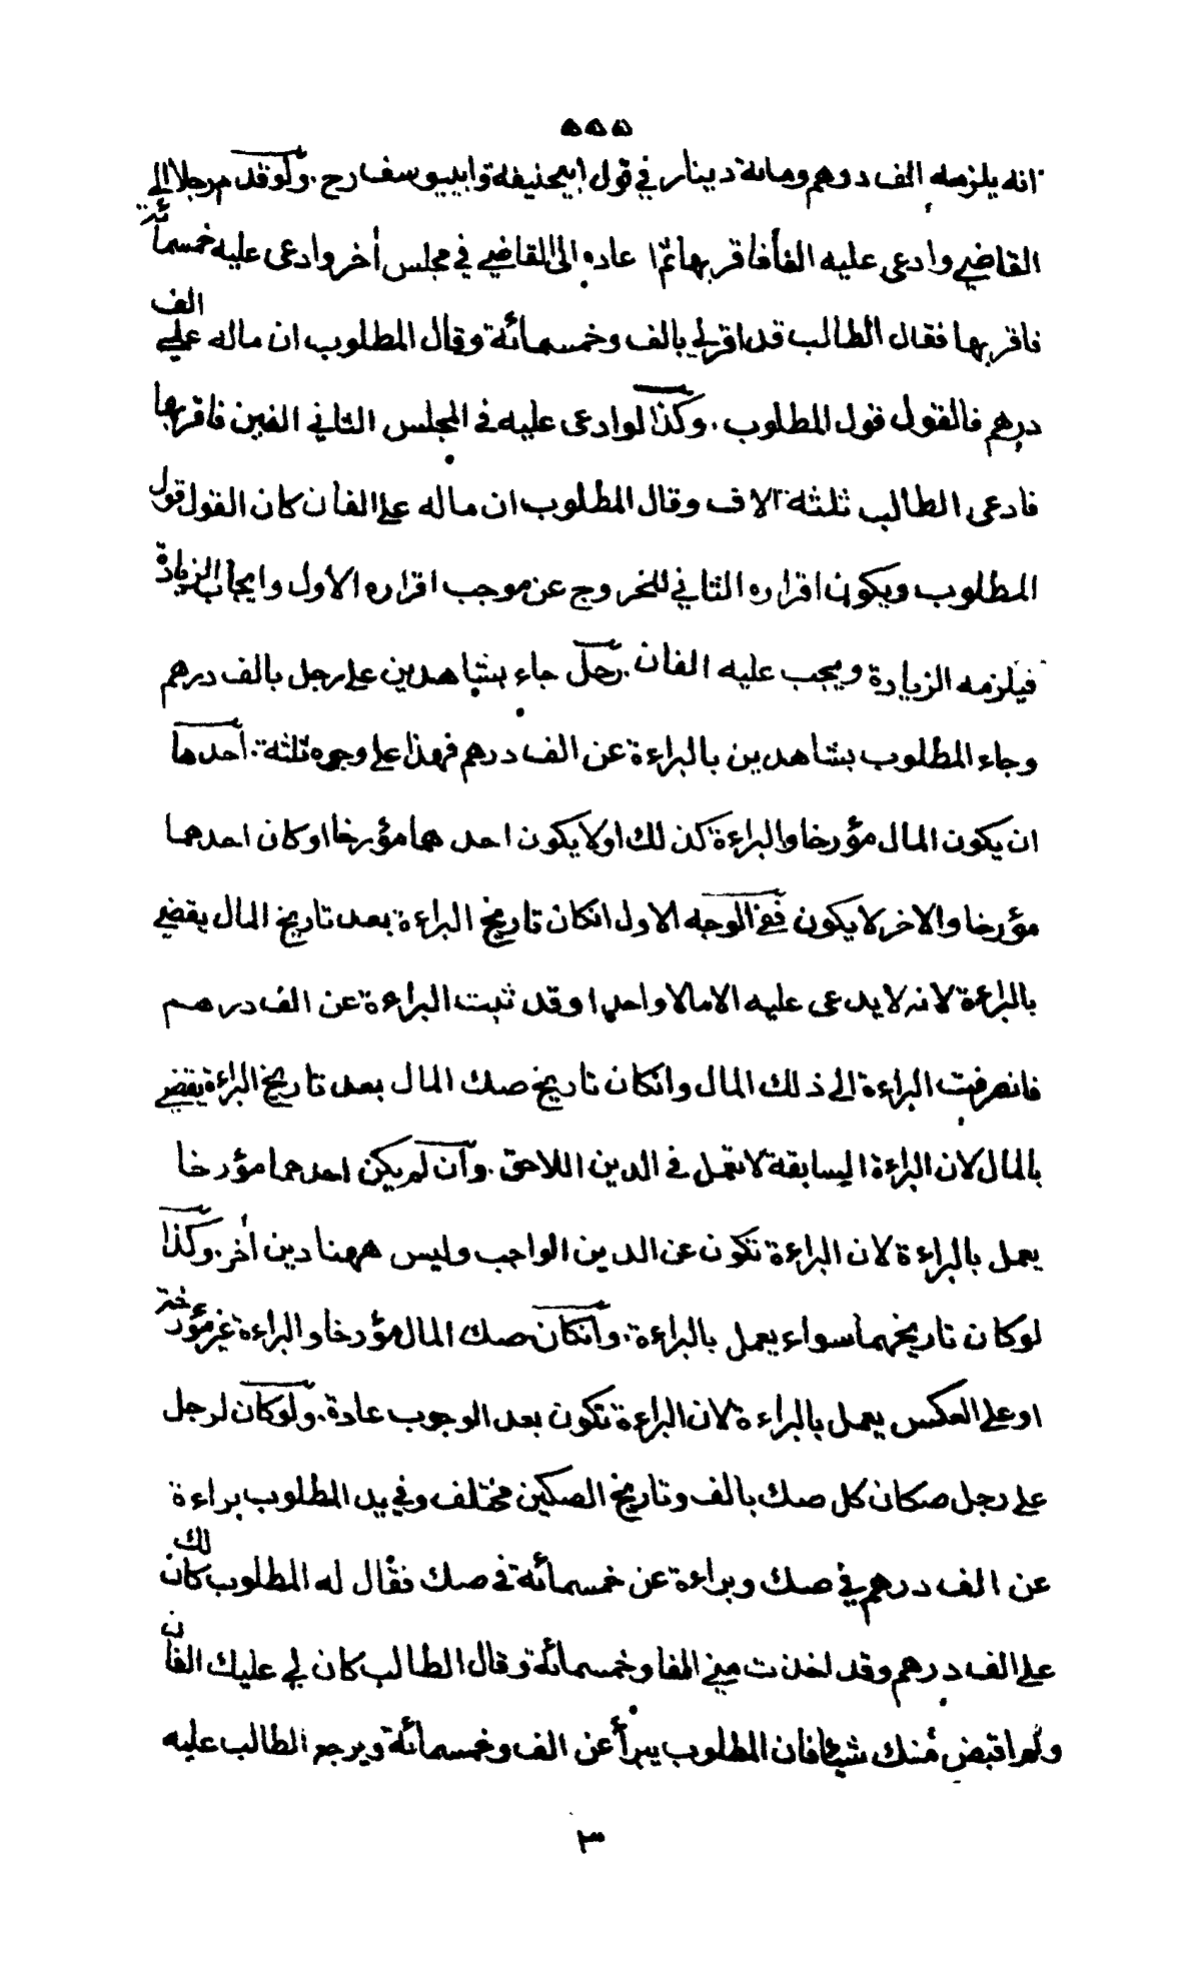 ۵۵۵
انه يلزمه الف درهم ومائة دينار في قول ابيحنيفة وابييوسف رح . ولو قدم رجلا الى
القاضي وادعى عليه الفا فاقر بها ثم اعاده الى القاضي في مجلس أخر وادعى عليه خمسمائة
فاقر بها فقال الطالب قد اقر لي بالف وخمسمائة وقال المطلوب ان ماله علي الف
درهم فالقول قول المطلوب . وكذا لو ادعى عليه في المجلس الثاني الفين فاقر بها
فادعى الطالب ثلثة الاف وقال المطلوب ان ماله علي الفان كان القول قول
المطلوب ويكون اقراره الثاني للخروج عن موجب اقراره الاول وايجاب الزيادة
فيلزمه الزيادة ويجب عليه الفان . رجل جاء بشاهدين على رجل بالف درهم
وجاء المطلوب بشاهدين بالبراءة عن الف درهم فهذا على وجوه ثلثة . احدها
ان يكون المال مؤرخا والبراءة كذلك اولا يكون احدهما مؤرخا او كان احدهما
مؤرخا والاخر لا يكون ففي الوجه الاول انكان تاريخ البراءة بعد تاريخ المال يقضي
بالبراءة لانه لا يدعى عليه الا مالا واحدا وقد ثبت البراءة عن الف درهم
فانصرفت البراءة الى ذلك المال وانكان تاريخ صك المال بعد تاريخ البراءة يقضي
بالمال لان البراءة السابقة لا تعمل في الدين اللاحق . وان لم يكن احدهما مؤرخا
يعمل بالبراءة لان البراءة تكون عن الدين الواجب وليس ههنا دين أخر . وكذا
لو كان تاريخهما سواء يعمل بالبراءة . وانكان صك المال مؤرخا والبراءة غير مؤرخة
او على العكس يعمل بالبراءة لان البراءة تكون بعد الوجوب عادة . ولو كان لرجل
على رجل صكان كل صك بالف وتاريخ الصكين مختلف وفي يد المطلوب براءة
عن الف درهم في صك وبراءة عن خمسمائة في صك فقال له المطلوب كان لك
علي الف درهم وقد اخذت مني الفا وخمسمائة وقال الطالب كان لي عليك الفان
ولم اقبض منك شيئا فان المطلوب يبرأ عن الف وخمسمائة ويرجع الطالب عليه
٣